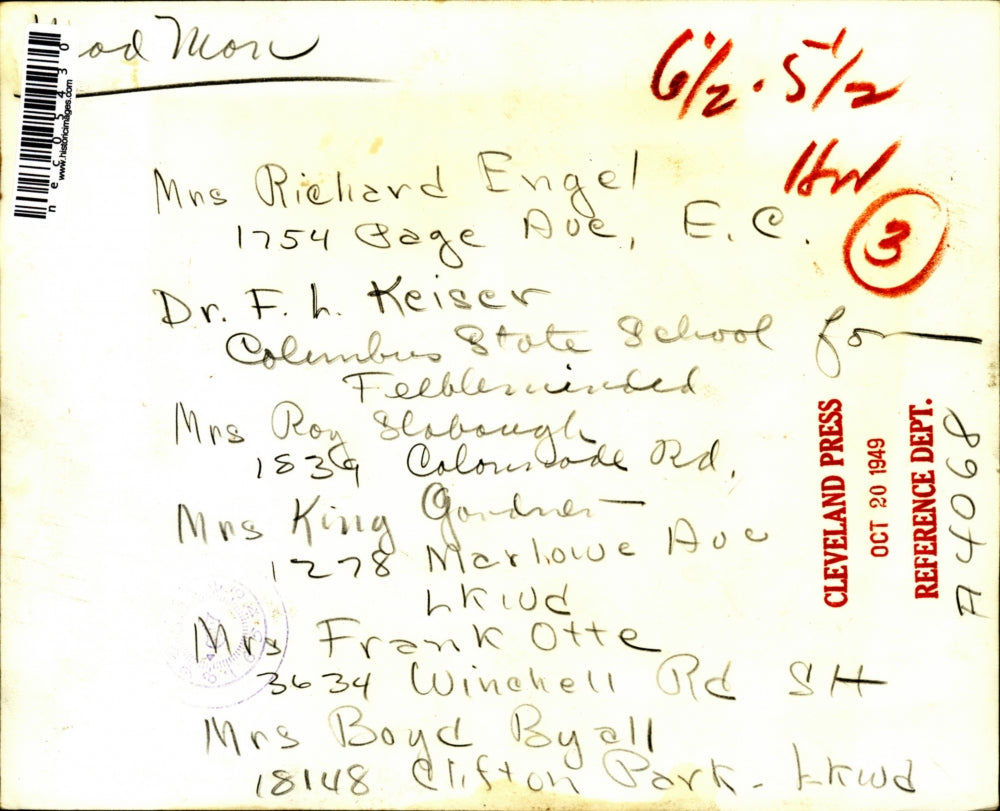 od Mon
6 1/2 · 5 1/2
HW
3
Mrs Richard Engel
1754 Page Ave, E.C.
Dr. F. L. Keiser
Columbus State School for
Feebleminded
Mrs Roy Slabaugh
1839 Colonnade Rd.
Mrs King Gardner
1278 Marlowe Ave
Lkwd
Mrs Frank Otte
3634 Winchell Rd SH
Mrs Boyd Byall
18148 Clifton Park - Lkwd
CLEVELAND PRESS
OCT 20 1949
REFERENCE DEPT.
A4068
www.historicimages.com
nec05430